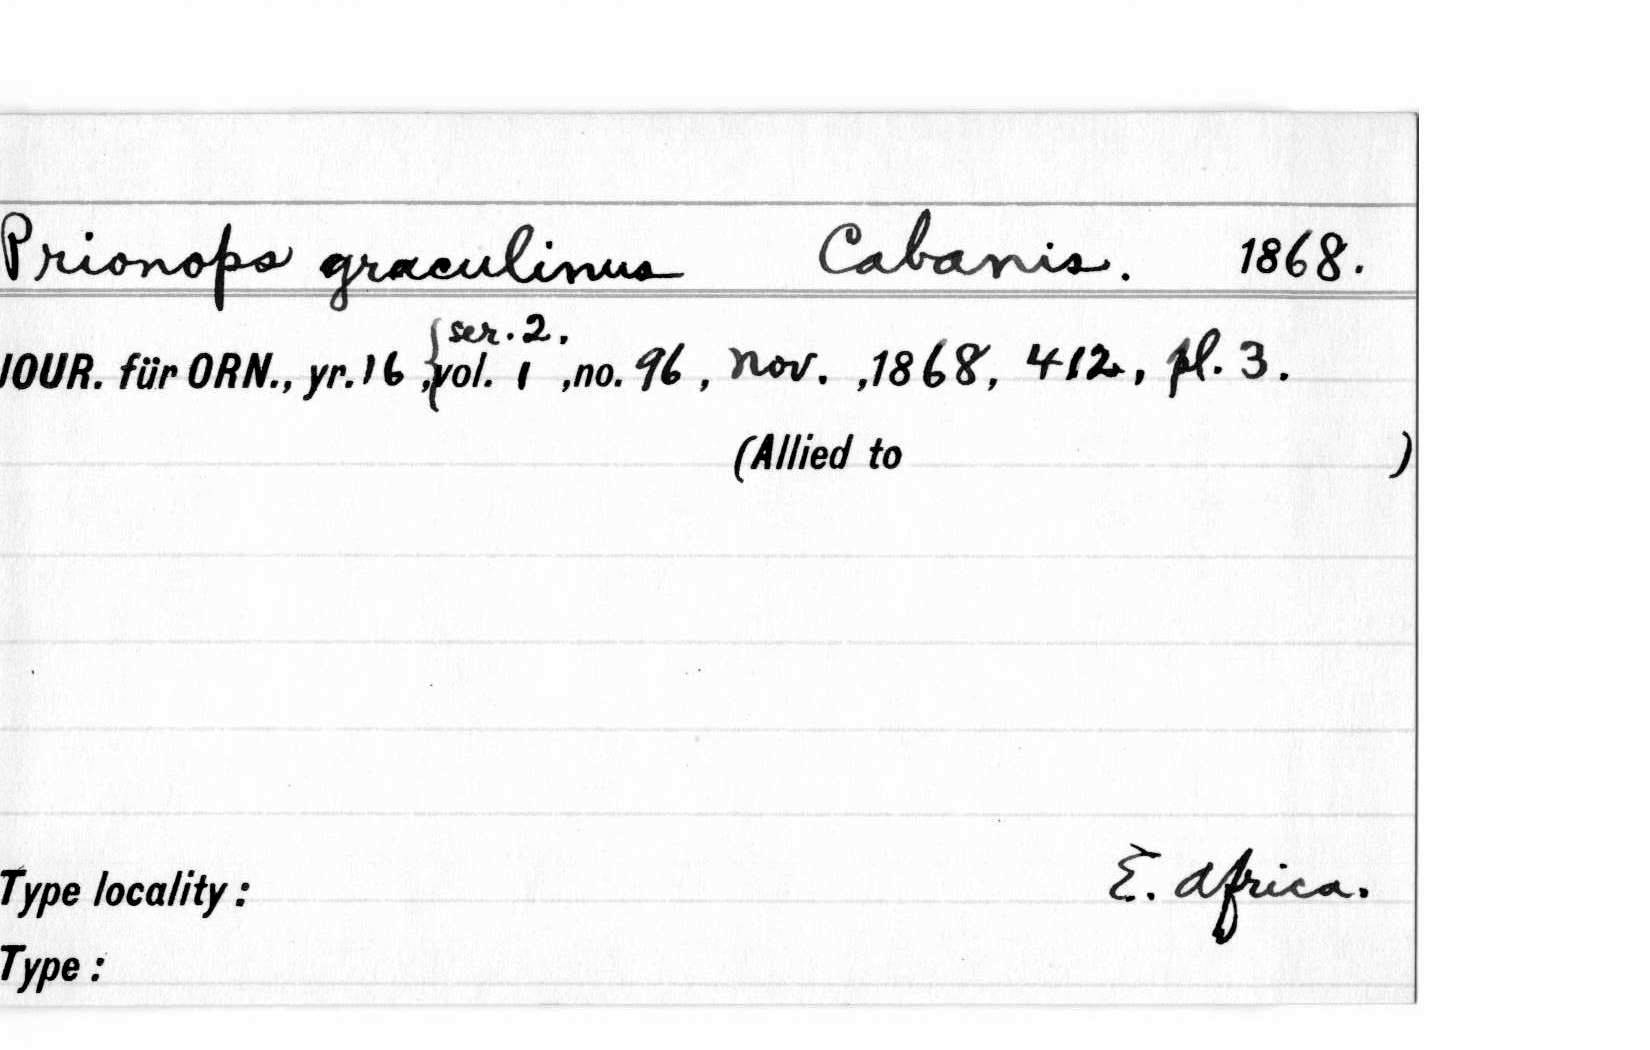 Prionops graculinus Cabanis. 1868.
ser. 2.
JOUR. für ORN., yr. 16, {vol. 1, no. 96, Nov., 1868, 412, pl. 3.
(Allied to )
Type locality: E. Africa.
Type: